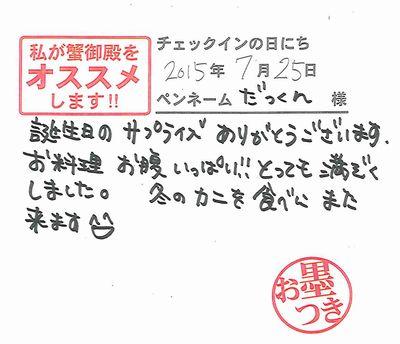 私が蟹御殿を
オススメ
します!!
チェックインの日にち
2015年7月25日
ペンネーム だっくん 様
誕生日の サプライズ ありがとうございます.
お料理 お腹 いっぱい!! とっても 満ぞく
しました。 冬のカニを食べに また
来ます^^
お墨
つき